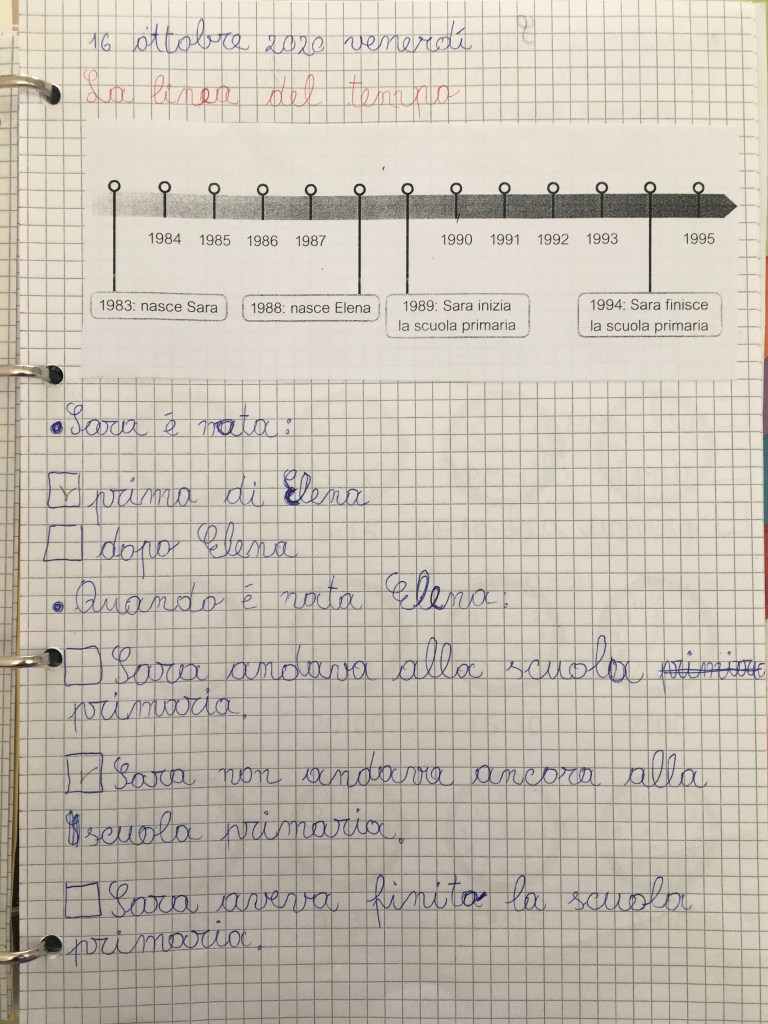 16 ottobre 2020 venerdí
La linea del tempo
1984 1985 1986 1987 1990 1991 1992 1993 1995
1983: nasce Sara
1988: nasce Elena
1989: Sara inizia
la scuola primaria
1994: Sara finisce
la scuola primaria
• Sara é nata:
prima di Elena
dopo Elena
• Quando é nata Elena:
Sara andava alla scuola
primaria.
Sara non andava ancora alla
scuola primaria.
Sara aveva finito la scuola
primaria.